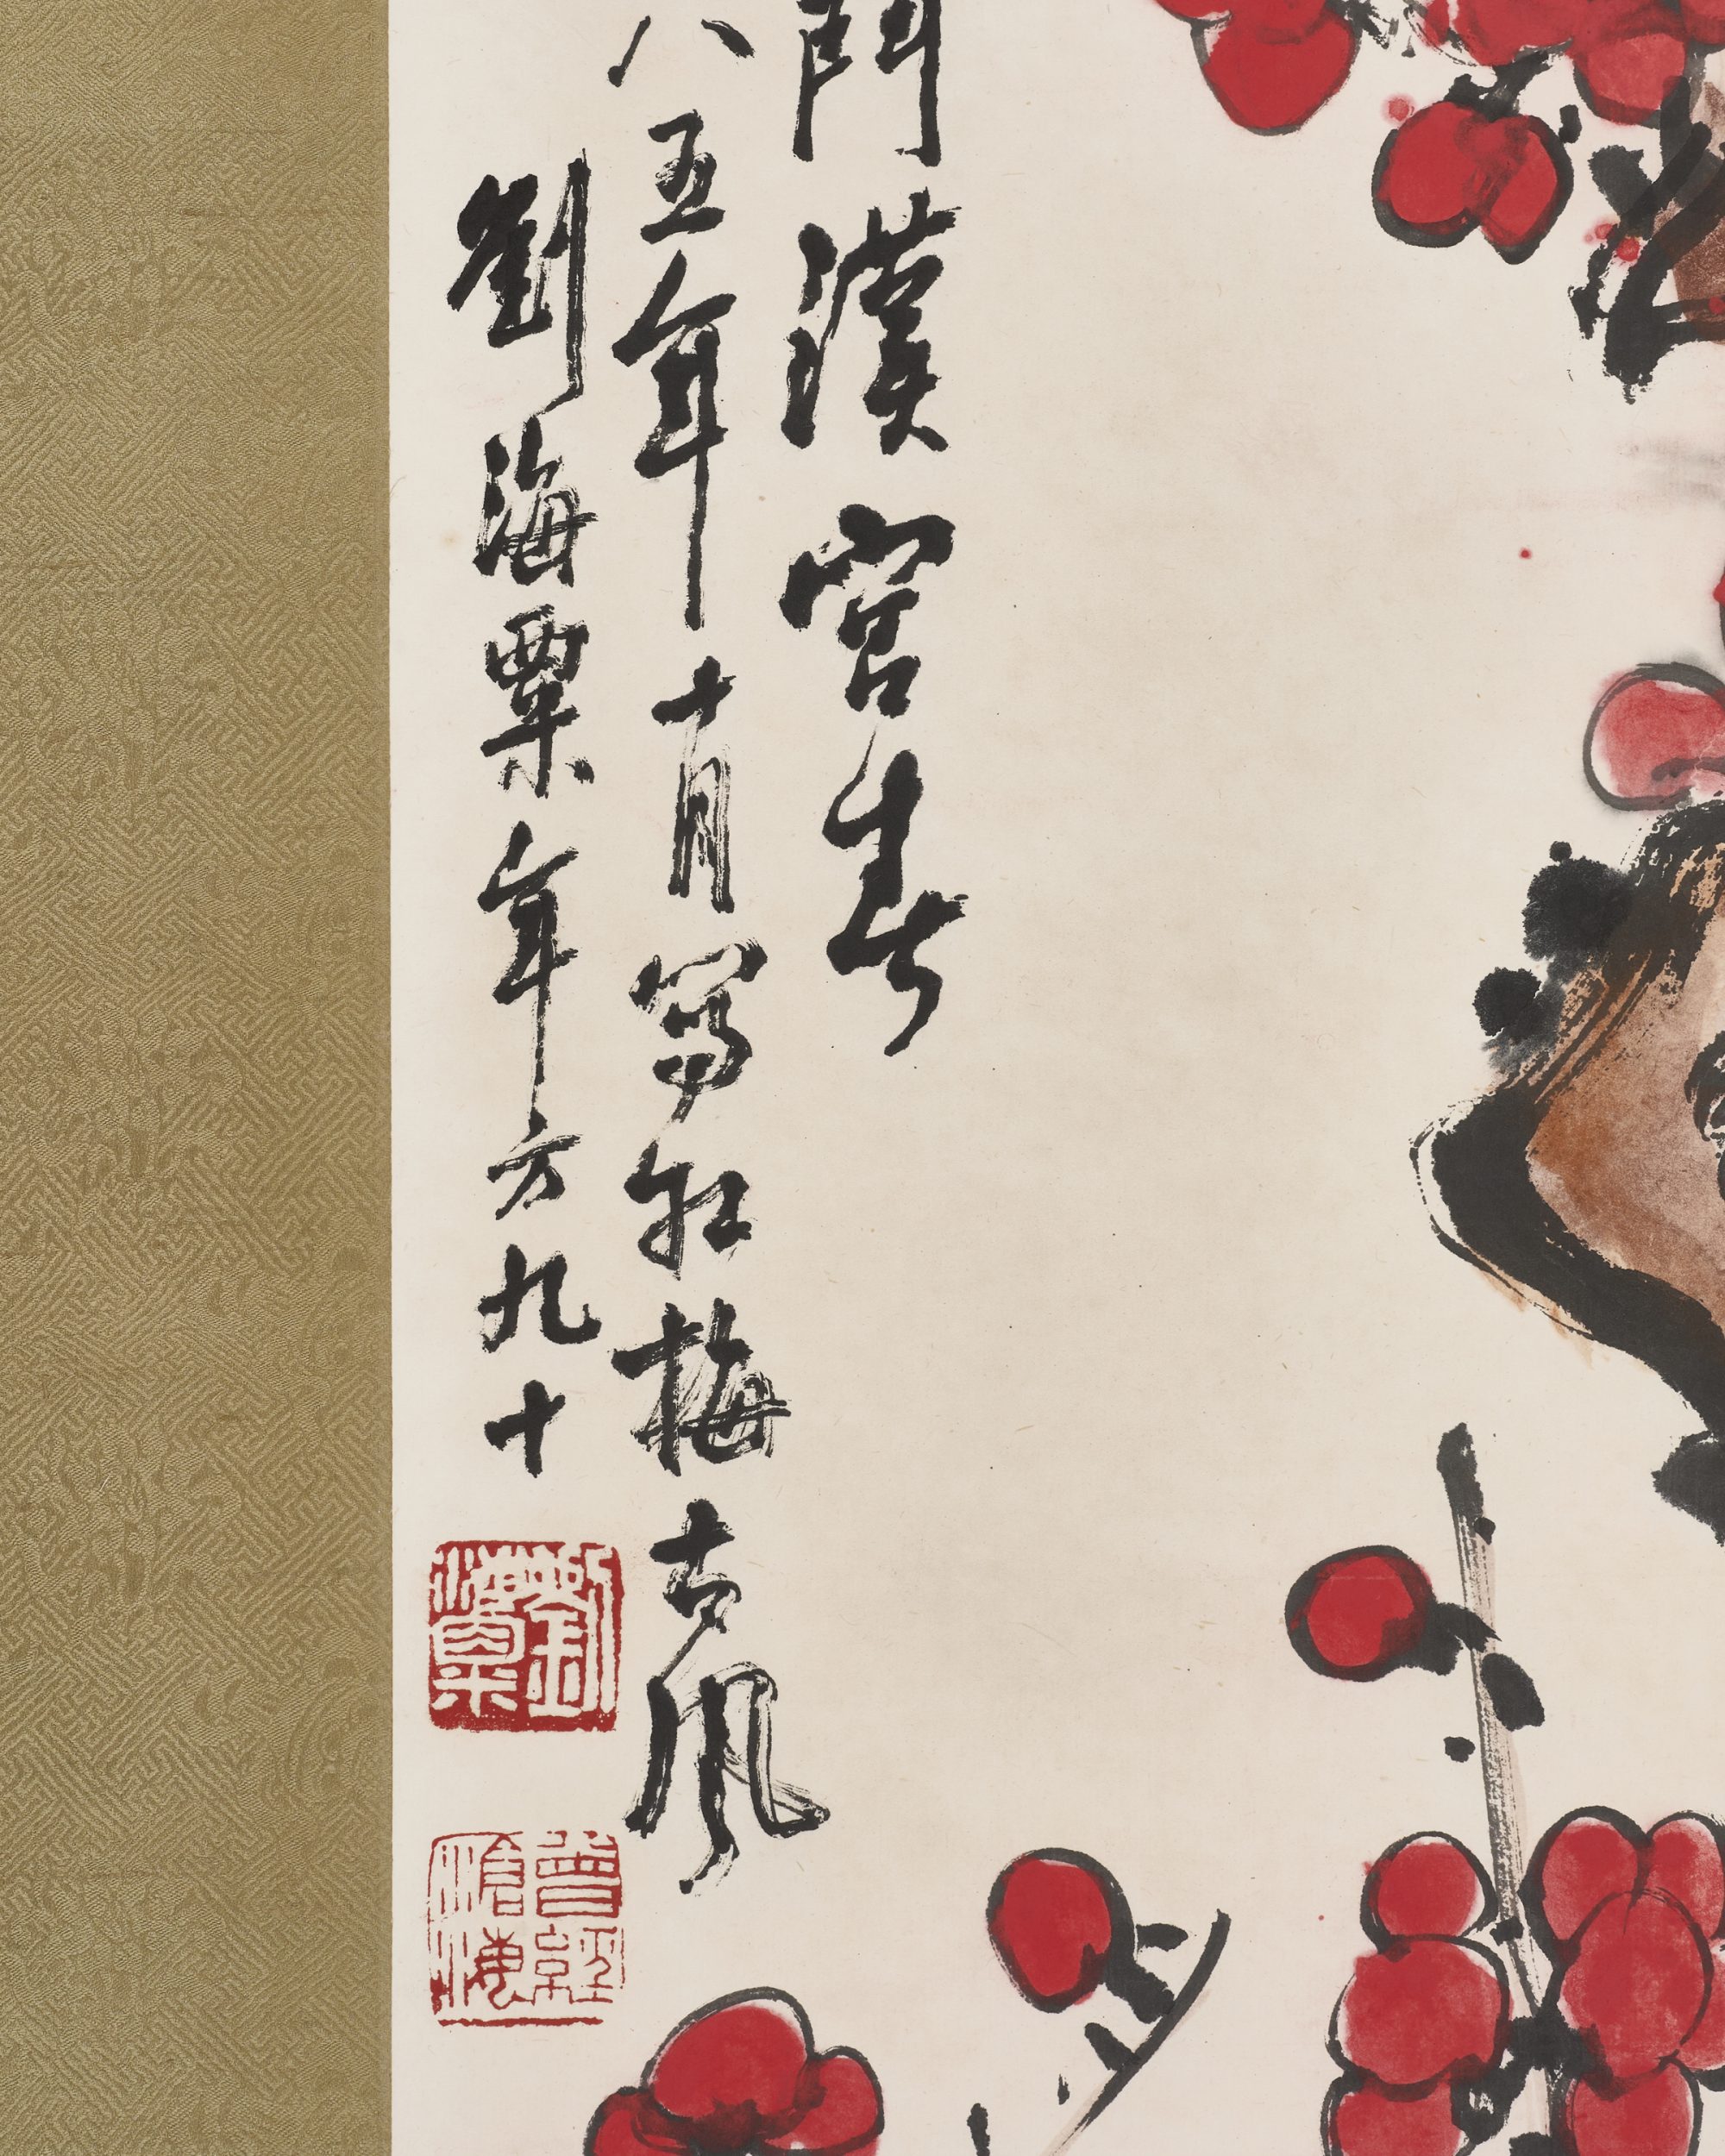 鬥漢宮春
八五年十月寫紅梅古風
劉海粟年方九十
劉海粟
曾經滄海